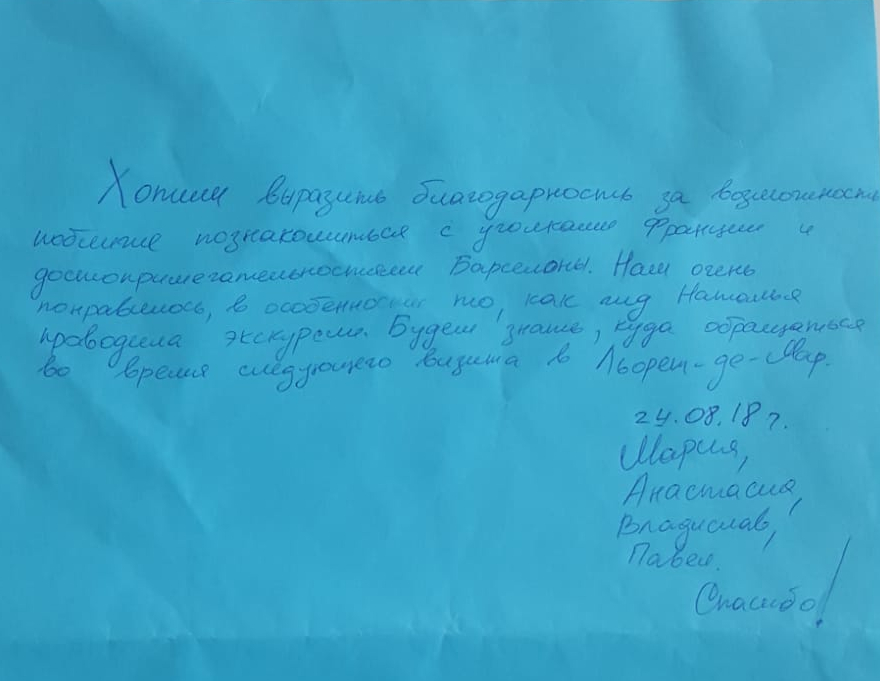 Хотим выразить благодарность за возможность
поближе познакомиться с уголками Франции и
достопримечательностями Барселоны. Нам очень
понравилось, в особенности то, как гид Наталья
проводила экскурсии. Будем знать, куда обращаться
во время следующего визита в Льорет-де-Мар.
24.08.18 г.
Мария,
Анастасия,
Владислав,
Павел.
Спасибо!